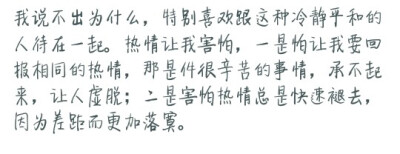 我说不出为什么，特别喜欢跟这种冷静平和的
人待在一起。热情让我害怕，一是怕让我要回
报相同的热情，那是件很辛苦的事情，承不起
来，让人虚脱；二是害怕热情总是快速褪去，
因为差距而更加落寞。